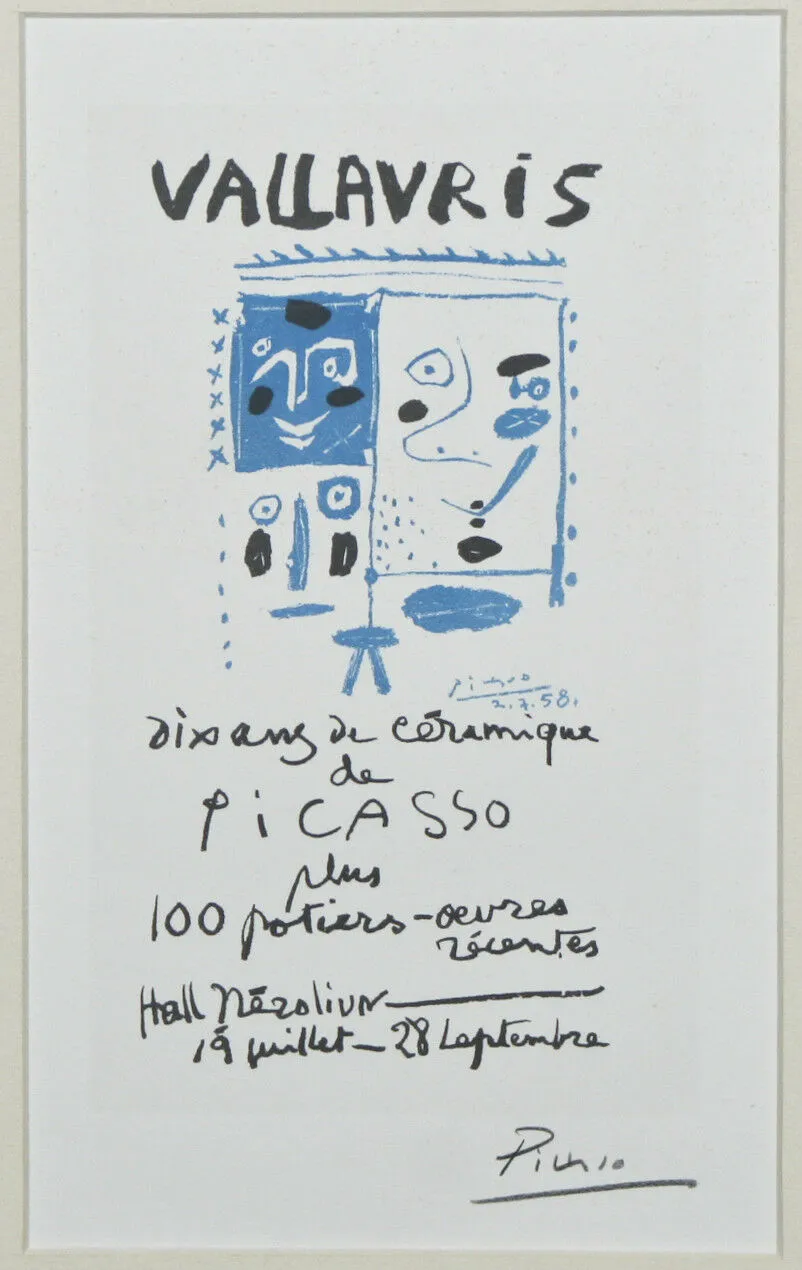 VALLAURiS
Picasso
2.7.58.
Dix ans de céramique
de
PiCASSO
plus
100 potiers-oeuvres
récentes
Hall Nérolium
19 juillet - 28 Septembre
Picasso